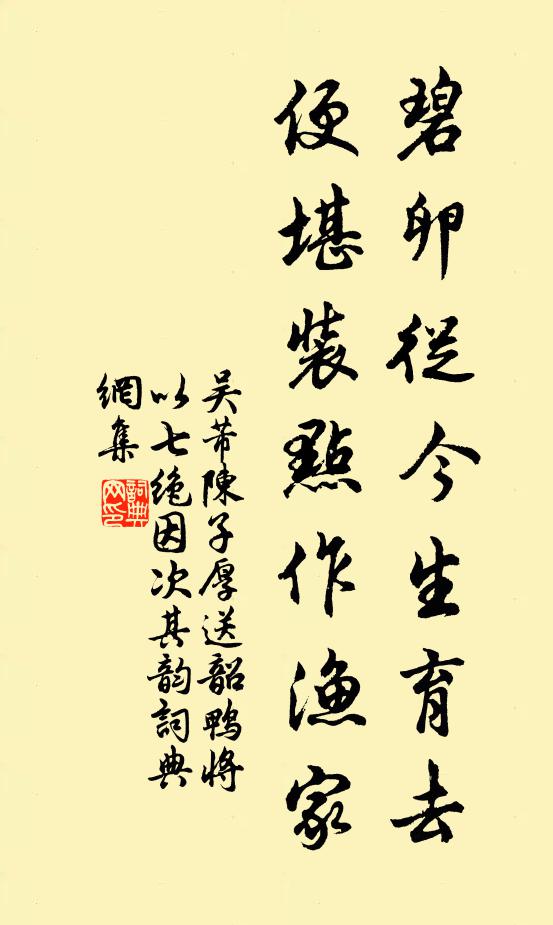 碧卵從今生育去
便堪裝點作漁家
吴芾陳子厚送韶鴨將
以七絶因次其韵詞典
網集
詞典網印